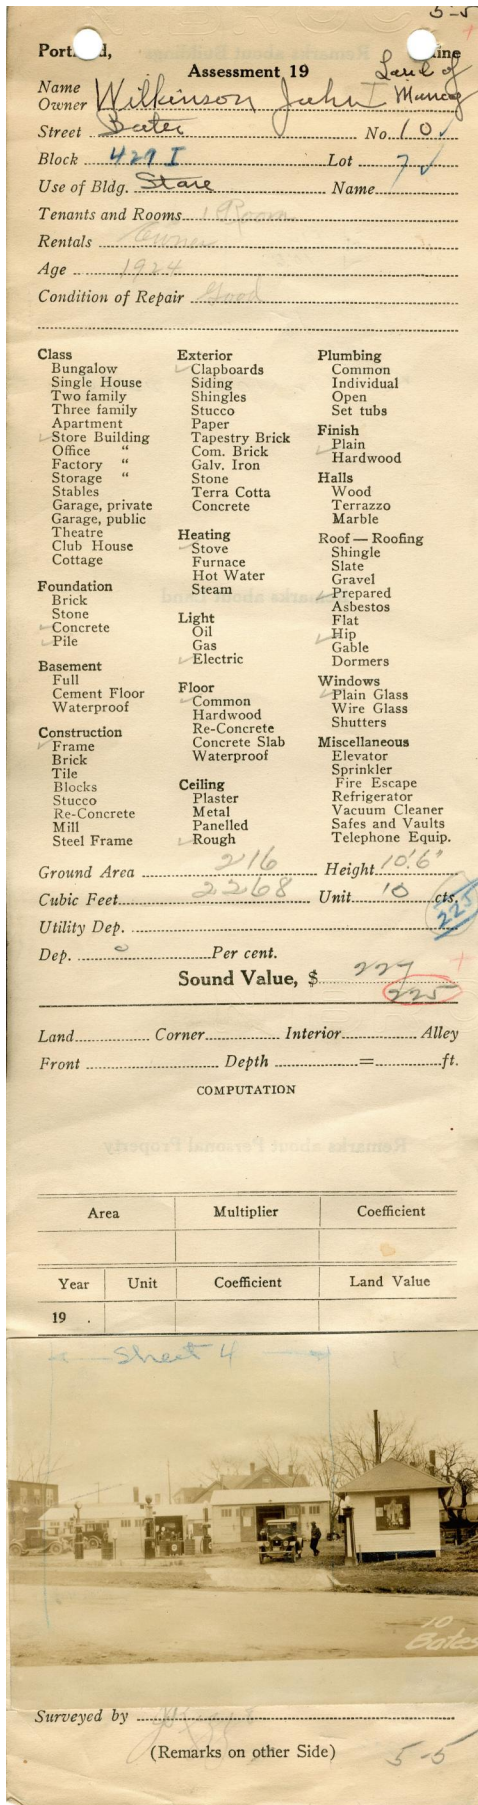 5-5
Portland, ine
Assessment 19
Land of
Name
Owner Wilkinson John I
Street Bates No. 10
Block 429 I Lot 7
Use of Bldg. Store Name
Tenants and Rooms 1 Room
Rentals Owner
Age 1924
Condition of Repair Good
Class
Bungalow
Single House
Two family
Three family
Apartment
Store Building
Office "
Factory "
Storage "
Stables
Garage, private
Garage, public
Theatre
Club House
Cottage
Foundation
Brick
Stone
Concrete
Pile
Basement
Full
Cement Floor
Waterproof
Construction
Frame
Brick
Tile
Blocks
Stucco
Re-Concrete
Mill
Steel Frame
Exterior
Clapboards
Siding
Shingles
Stucco
Paper
Tapestry Brick
Com. Brick
Galv. Iron
Stone
Terra Cotta
Concrete
Heating
Stove
Furnace
Hot Water
Steam
Light
Oil
Gas
Electric
Floor
Common
Hardwood
Re-Concrete
Concrete Slab
Waterproof
Ceiling
Plaster
Metal
Panelled
Rough
Plumbing
Common
Individual
Open
Set tubs
Finish
Plain
Hardwood
Halls
Wood
Terrazzo
Marble
Roof — Roofing
Shingle
Slate
Gravel
Prepared
Asbestos
Flat
Hip
Gable
Dormers
Windows
Plain Glass
Wire Glass
Shutters
Miscellaneous
Elevator
Sprinkler
Fire Escape
Refrigerator
Vacuum Cleaner
Safes and Vaults
Telephone Equip.
Ground Area 216 Height 10'.6"
Cubic Feet 2268 Unit 10 cts.
225
Utility Dep.
Dep. 0 Per cent.
Sound Value, $ 227
225
Land Corner Interior Alley
Front Depth = ft.
COMPUTATION
Area Multiplier Coefficient
Year Unit Coefficient Land Value
19 .
Sheet 4
10
Bates
Surveyed by
(Remarks on other Side)
5-5